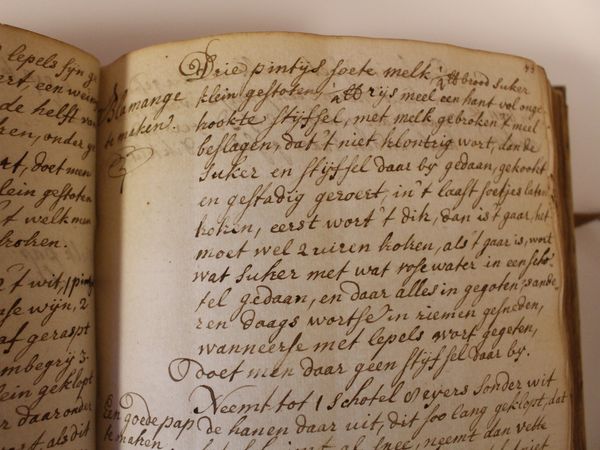 lepels fijn g
ert, een wein
de helft van
ken, onder g
rt, doet men
klein gestoten
't welk men
broken.
't wit, 1 pint
se wijn, 2
af geraspt
mbegrij 3
ein geklopt
er daar onder
ort als dit
43
Blamange
te maken.
Drie pintijs soete melk, ℔ brood suker
klein gestoten, ℔ rijs meel een hant vol onge
kookte stijssel, met melk gebroken 't meel
beslagen, dat 't niet klontrig wort, dan de
suker en stijssel daar bij gedaan, gekookt
en gestadig geroert, in 't laast soetjes laten
koken, eerst wort 't dik, dan is 't gaar, het
moet wel 2 uiren koken, als 't gaar is, wort
wat suker met wat rose water in een scho
tel gedaan, en daar alles in gegoten, s'ande
ren daags wort se in riemen gesneden,
wanneer se met lepels wort gegeten,
doet men daar geen stijssel daar bij.
Een goede pap
te maken
Neemt tot 1 schotel 8 eyers sonder wit
de hanen daar uit, dit soo lang geklopt, dat
al snee, neemt dan vette